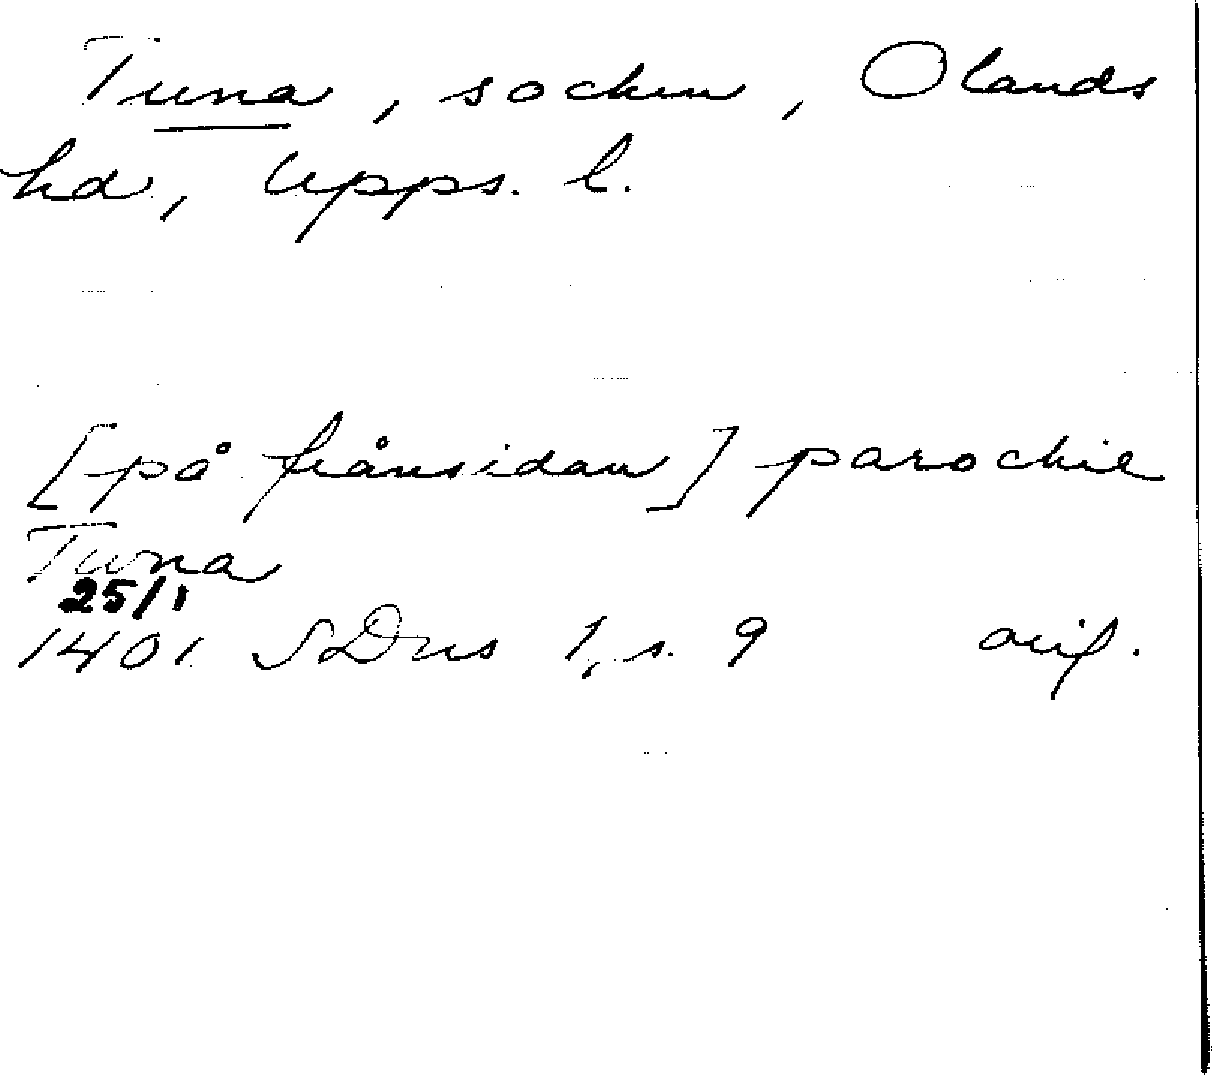 Tuna, socken, Olands
hd, Upps. l.
[på frånsidan] parochie
Tuna
25/1
1401 SDns 1, s. 9 orig.